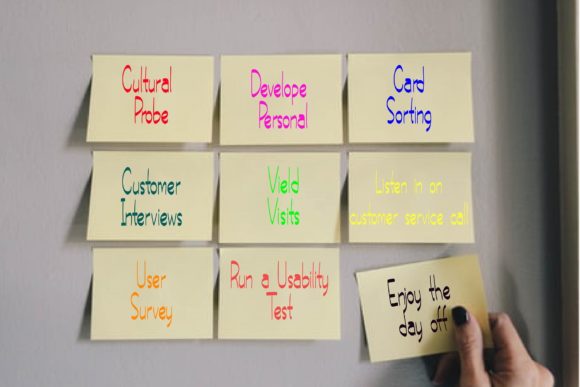 Cultural
Probe
Develope
Personal
Card
Sorting
Customer
Interviews
Vield
Visits
Listen in on
customer service call
User
Survey
Run a Usability
Test
Enjoy the
day off